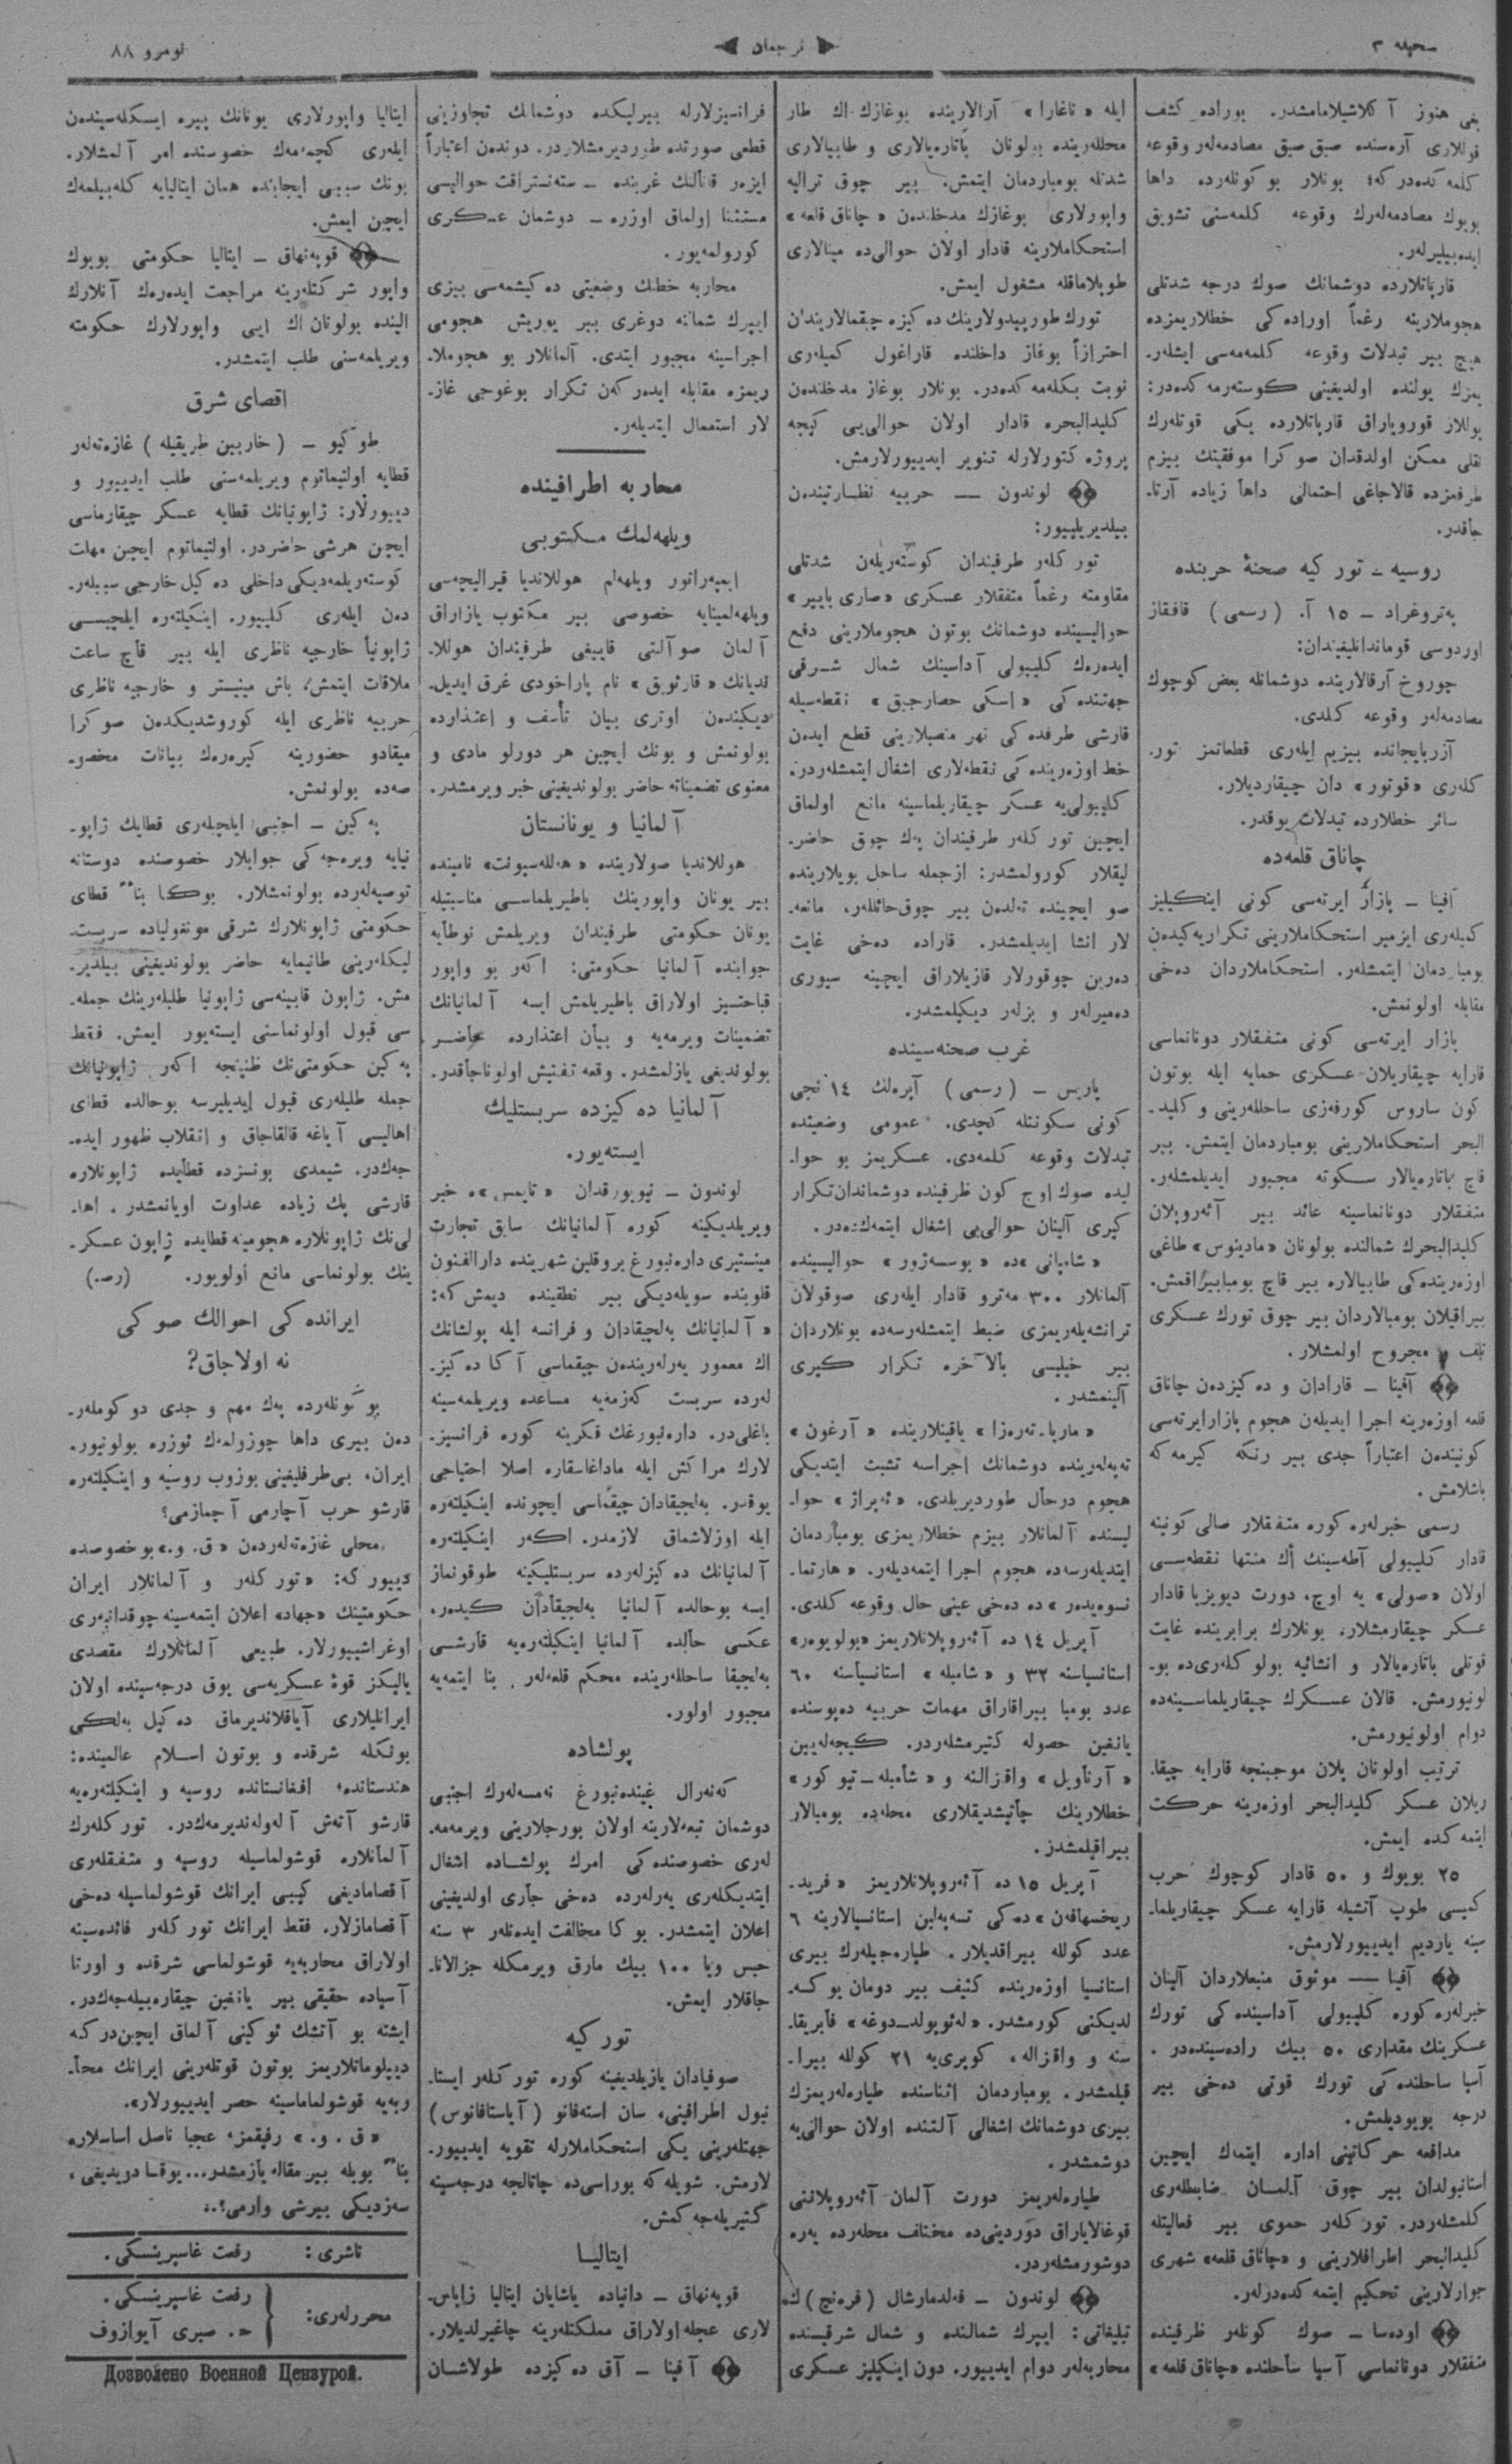 صحیفه ٣
ترجمان
نومرو ٨٨
یغی هنوز آكلاشیلامامشدر. بوراده كشف
قوللاری آره‌سنده صیق صیق مصادمه‌لر وقوعه
كلمه‌كده‌دركه؛ بونلار بو كونلرده داها
بویوك مصادمه‌لرك وقوعه كلمه‌سنی تشویق
ایده‌بیلیرلر.
قارپاتلارده دوشمانك صوك درجه شدتلی
هجوملارینه رغماً اوراده‌كی خطلاریمزده
هیچ بیر تبدلات وقوعه كلمه‌مه‌سی ایشلر-
یمزك یولنده اولدیغینی كوسته‌رمه‌كده‌در:
یوللار قورویاراق قارپاتلارده یكی قوتلرك
نقلی ممكن اولدقدان صوكرا موفقیتك بیزم
طرفمزده قالاجاغی احتمالی داها زیاده آرتا-
جاقدر.
روسیه - توركیه صحنهٔ حربنده
پەتروغراد - ١٥ آ. (رسمی) قافقاز
اوردوسی قوماندانلیغیندان:
چوروخ آرقالارینده دوشمانله بعض كوچوك
مصادمه‌لر وقوعه كلدی.
آزربایجانده بیزیم ایلەری قطعاتمز تور-
كلەری «قوتور» دان چیقاردیلار.
سائر خطلارده تبدلات یوقدر.
چاناق قلعه‌ده
آفینا - پازار ایرته‌سی كونی اینكیلیز
كمیلەری ایزمیر استحكاملارینی تكرار یه‌كیدەن
بومباردمان ایتمشلەر. استحكاملاردان دەخی
مقابله اولونمش.
پازار ایرته‌سی كونی متفقلار دونانماسی
قارایه چیقاریلان عسكری حمایه ایله بوتون
كون ساروس كورفەزی ساحللەرینی و كلید-
البحر استحكاملارینی بومباردمان ایتمش. بیر
قاچ باتارەیالار سكوته مجبور ایدیلمشلەر.
متفقلار دونانماسینه عائد بیر آئەروپلان
كلیدالبحرك شمالنده بولونان «مادینوس» طاغی
اوزەرینده‌كی طابیالاره بیر قاچ بومبا بیراقمش.
بیراقیلان بومبالاردان بیر چوق تورك عسكری
تلف و مجروح اولمشلار.
آفینا - قارادان و دەكیزدەن چاناق
قلعه اوزەرینه اجرا ایدیلەن هجوم پازار ایرته‌سی
كونیندەن اعتباراً جدی بیر رنكه كیرمه‌كه
باشلامش.
رسمی خبرلەره كوره متفقلار صالی كونینه
قادار كلیبولی آطه‌سینك أك منتها نقطه‌سی
اولان «صولی» یه اوچ، دورت دیویزیا قادار
عسكر چیقارمشلار. بونلارك برابرینده غایت
قوتلی باتارەیالار و انشائیه بولوكلەری‌ده بو-
لونیورمش. قالان عسكرك چیقاریلماسینه‌ده
دوام اولونیورمش.
ترتیب اولونان پلان موجبنجه قارایه چیقا-
ریلان عسكر كلیدالبحر اوزەرینه حركت
ایتمه‌كده ایمش.
٢٥ بویوك و ٥٠ قادار كوچوك حرب
كمیسی طوپ آتشیله قارایه عسكر چیقاریلما-
سینه یاردیم ایدییورلارمش.
آفینا — موثوق منبعلاردان آلینان
خبرلەره كوره كلیبولی آداسینده‌كی تورك
عسكرینك مقداری ٥٠ بیك رادەسینده‌در.
آسیا ساحلنده‌كی تورك قوتی دەخی بیر
درجه بویودیلمش.
مدافعه حركاتینی اداره ایتمك ایچین
استانبولدان بیر چوق آلمان ضابطلەری
كلمشلەردر. توركلەر حموی بیر فعالیتله
كلیدالبحر اطرافلارینی و «چاناق قلعه» شهری
جوارلارینی تحكیم ایتمه‌كده‌درلەر.
اودەسا - صوك كونلەر ظرفینده
متفقلار دونانماسی آسیا ساحلنده «چاناق قلعه»
ایله «ناغارا» آرالارینده بوغازك اك طار
محللەرینده بولونان باتارەیالاری و طابیالاری
شدتله بومباردمان ایتمش. بیر چوق ترالیه
واپورلاری بوغازك مدخلندەن «چاناق قلعه»
استحكاملارینه قادار اولان حوالی‌ده مینالاری
طوپلاماقله مشغول ایمش.
تورك طورپیدولارینك دەكیزه چیقمالاریندان
احترازاً بوغاز داخلنده قاراغول كمیلەری
نوبت بكله‌مه‌كده‌در. بونلار بوغاز مدخلندەن
كلیدالبحره قادار اولان حوالی‌یی كیجه
پروژەكتورلارله تنویر ایدییورلارمش.
لوندون — حربیه نظارتیندەن
بیلدیریلییور:
توركلەر طرفیندان كوسته‌ریلەن شدتلی
مقاومته رغماً متفقلار عسكری «صاری بایر»
حوالیسینده دوشمانك بوتون هجوملارینی دفع
ایدەرەك كلیبولی آداسینك شمال شرقی
جهتنده‌كی «اسكی حصارجیق» نقطه‌سیله
قارشی طرفده‌كی نهر منصبلارینی قطع ایدەن
خط اوزەرینده‌كی نقطه‌لاری اشغال ایتمشلەردر.
كلیبولی‌یه عسكر چیقاریلماسینه مانع اولماق
ایچین توركلەر طرفیندان پەك چوق حاضر-
لیقلار كورولمشدر: ازجمله ساحل بویلارینده
صو ایچینده تەلدەن بیر چوق حائللەر، مانعه-
لار انشا ایدیلمشدر. قاراده دەخی غایت
دەرین چوقورلار قازیلاراق ایچینه سیوری
دەمیرلەر و بزلەر دیكیلمشدر.
غرب صحنه‌سینده
پاریس - (رسمی) آپرەلك ١٤ نجی
كونی سكونتله كچدی. عمومی وضعیتده
تبدلات وقوعه كلمەدی. عسكریمز بو حوا-
لیده صوك اوچ كون ظرفینده دوشماندان تكرار
كیری آلینان حوالی‌یی اشغال ایتمه‌كده‌در.
«شامپانی» ده «بوسسەژور» حوالیسینده
آلمانلار ٣٠٠ مەترو قادار ایلەری صوقولان
ترانشەیلەریمزی ضبط ایتمشلەرسه‌ده بونلاردان
بیر خیلیسی بالآخره تكرار كیری
آلینمشدر.
«ماریا-تەرەزا» یاقینلارینده «آرغون»
تەپەلەرینده دوشمانك اجراسه تشبث ایتدیكی
هجوم درحال طوردیریلدی. «ئەپراژ» حوا-
لیسنده آلمانلار بیزم خطلاریمزی بومباردمان
ایتدیلەرسه‌ده هجوم اجرا ایتمەدیلەر. «هارتما-
نسوەیلەر» ده دەخی عینی حال وقوعه كلدی.
آپریل ١٤ ده آئەروپلانلاریمز «بولویوەر»
استانسیاسنه ٣٢ و «شامبله» استانسیاسنه ٦٠
عدد بومبا بیراقاراق مهمات حربیه دەپوسنده
یانغین حصوله كتیرمشلەردر. كیجه‌لەیین
«آرناویل» واقزالنه و «شامبله-تیوكور»
خطلارینك چاتیشدیقلاری محله‌ده بومبالار
بیراقیلمشدر.
آپریل ١٥ ده آئەروپلانلاریمز «فرید-
ریخسهافەن» ده‌كی تسەپەلین استانسیالارینه ٦
عدد كولله بیراقدیلار. طیاره‌جیلەرك بیری
استانسیا اوزەرینده كثیف بیر دومان یوكسه-
لدیكنی كورمشدر. «لەئوپولد-دوغه» فابریقا-
سنه و واقزاله، كوپری‌یه ٢١ كولله بیرا-
قیلمشدر. بومباردمان اثناسنده طیاره‌لەریمزك
بیری دوشمانك اشغالی آلتنده اولان حوالی‌یه
دوشمشدر.
طیاره‌لەریمز دورت آلمان آئەروپلاننی
قوغالایاراق دوردینی‌ده مختلف محلەرده یەره
دوشورمشلەردر.
لوندون - فەلدمارشال (فرەنچ)ك
تبلیغاتی: ایپرك شمالنده و شمال شرقیسنده
محاربه‌لەر دوام ایدییور. دون اینكیلیز عسكری
فرانسیزلارله بیرلیكده دوشمانك تجاوزینی
قطعی صورتده طوردیرمشلاردر. دوندەن اعتباراً
ایزەر قنالنك غربنده - ستەنستراقت حوالیسی
مستثنا اولماق اوزره - دوشمان عسكری
كورولمەیور.
محاربه خطنك وضعیتی دەكیشمەسی بیزی
ایپرك شمالنه دوغری بیر یوریش هجومی
اجراسینه مجبور ایتدی. آلمانلار بو هجوملا-
ریمزه مقابله ایدەركەن تكرار بوغوجی غاز-
لار استعمال ایتدیلەر.
محاربه اطرافینده
ویلهەلمك مكتوبی
ایمپەراتور ویلهەلم هوللاندیا قیرالیچەسی
ویلهەلمینایه خصوصی بیر مكتوب یازاراق
آلمان صو آلتی قاییغی طرفیندان هوللا-
ندیانك «قارتویق» نام پاراخودی غرق ایدیل-
دیكندەن اوتری بیان تأسف و اعتذارده
بولونمش و بونك ایچین هر دورلو مادی و
معنوی تضمیناته حاضر بولوندیغینی خبر ویرمشدر.
آلمانیا و یونانستان
هوللاندیا صولارینده «هەللەسپونت» نامینده
بیر یونان واپورینك باطیریلماسی مناسبتیله
یونان حكومتی طرفیندان ویریلمش نوطایه
جوابنده آلمانیا حكومتی: اكەر بو واپور
قباحتسیز اولاراق باطیریلمش ایسه آلمانیانك
تضمینات ویرمه‌یه و بیان اعتذارده حاضر
بولوندیغی یازلمشدر. وقعه تفتیش اولوناجاقدر.
آلمانیا دەكیزده سربستلیك
ایستەیور.
لوندون - نیویورقدان «تایمس» ه خبر
ویریلدیكینه كوره آلمانیانك سابق تجارت
مینستیری دارەنبورغ بروقلین شهرینده دارالفنون
قلوبنده سویلەدیكی بیر نطقینده دیمش كه:
«آلمانیانك بەلجیقادان و فرانسه ایله پولشانك
اك معمور یەرلەریندەن چیقماسی آكا دەكیز-
لەرده سربست كەزمەیه مساعده ویریلمەسینه
باغلی‌در. دارەنبورغك فكرینه كوره فرانسیز-
لارك مراكش ایله ماداغاسقاره اصلا احتیاجی
یوقدر. بەلجیقادان چیقماسی ایچونده اینكیلتەره
ایله اوزلاشماق لازمدر. اكەر اینكیلتەره
آلمانیانك دەكیزلەرده سربستلیكینه طوقونماز
ایسه بوحالده آلمانیا بەلجیقادان كیدەر،
عكسی حالده آلمانیا اینكیلتەره‌یه قارشی
بەلجیقا ساحللەرینده محكم قلعه‌لەر بنا ایتمەیه
مجبور اولور.
پولشاده
كەنەرال غیندەنبورغ نەمسەلەرك اجنبی
دوشمان تبعەلارینه اولان بورجلارینی ویرمەمە-
لەری خصوصنده‌كی امرك پولشاده اشغال
ایتدیكلەری یەرلەرده دەخی جاری اولدیغینی
اعلان ایتمشدر. بوكا مخالفت ایدەنلەر ٣ سنه
حبس ویا ١٠٠ بیك مارق ویرمكله جزالانا-
جاقلار ایمش.
توركیه
صوفیادان یازیلدیغینه كوره توركلەر ایستا-
نبول اطرافینی، سان استەفانو (آیاستافانوس)
جهتلەرینی یكی استحكاملارله تقویه ایدییور-
لارمش. شویله‌كه بوراسی‌ده چاتالجه درجەسینه
كتیریلەجەكمش.
ایتالیا
قوپەنهاق - دانیاده یاشایان ایتالیا زاپاس-
لاری عجله اولاراق مملكتلەرینه چاغیرلدیلار.
آفینا - آق دەكیزده طولاشان
ایتالیا واپورلاری یونانك پیره ایسكلەسیندەن
ایلەری كچمەمك خصوصنده امر آلمشلار.
بونك سببی ایجابنده همان ایتالیایه كلەبیلمەك
ایچن ایمش.
قوپەنهاق - ایتالیا حكومتی بویوك
واپور شركتلەرینه مراجعت ایدەرەك آنلارك
الینده بولونان اك ایی واپورلارك حكومته
ویریلمەسنی طلب ایتمشدر.
اقصای شرق
طوكیو - (خاربین طریقیله) غازەتەلەر
قطایه اولتیماتوم ویریلمەسنی طلب ایدییور و
دییورلار: ژاپونیانك قطایه عسكر چیقارماسی
ایچن هرشی حاضردر. اولتیماتوم ایچین مهلت
كوستەریلمەدیكی داخلی دەكیل خارجی سببلەر-
دەن ایلەری كلییور. اینكیلتەره ایلچیسی
ژاپونیا خارجیه ناظری ایله بیر قاچ ساعت
ملاقات ایتمش، باش مینیستر و خارجیه ناظری
حربیه ناظری ایله كوروشدیكدەن صوكرا
میقادو حضورینه كیرەرەك بیانات مخصو-
صەده بولونمش.
پەكین - اجنبی ایلچیلەری قطایك ژاپو-
نیایه ویرەجەكی جوابلار خصوصنده دوستانه
توصیەلەرده بولونمشلار. بوكا بناً قطای
حكومتی ژاپونلارك شرقی مونغولیاده سربست-
لیكلەرینی طانیمایه حاضر بولوندیغینی بیلدیر-
مش. ژاپون قابینەسی ژاپونیا طلبلەرینك جمله-
سی قبول اولونماسنی ایستەیور ایمش. فقط
پەكین حكومتی‌نك ظنینجه اكەر ژاپونیانك
جمله طلبلەری قبول ایدیلیرسه بوحالده قطای
اهالیسی آیاغه قالقاجاق و انقلاب ظهور ایدە-
جەك‌در. شیمدی بونسزده قطایده ژاپونلاره
قارشی پك زیاده عداوت اویانمشدر. اها-
لی‌نك ژاپونلاره هجومینه قطایده ژاپون عسكر-
ینك بولونماسی مانع اولویور. (رص.)
ایرانده‌كی احوالك صوكی
نه اولاجاق؟
بو كونلەرده پەك مهم و جدی دوكوملەر-
دەن بیری داها چوزولمەك ئوزره بولونیور.
ایران، بی‌طرفلیغینی بوزوب روسیه و اینكیلتەره
قارشو حرب آچارمی آچمازمی؟
محلی غازەتەلەردەن «ق. و.» بو خصوصده
دییوركه: «توركلەر و آلمانلار ایران
حكومتینك «جهاد» اعلان ایتمەسینه چوقدانبەری
اوغراشییورلار. طبیعی آلمانلارك مقصدی
یالیكز قوهٔ عسكریەسی یوق درجەسینده اولان
ایرانلیلاری آیاقلاندیرماق دەكیل بەلكی
بونكله شرقده و بوتون اسلام عالمینده:
هندستانده، افغانستانده روسیه و اینكیلتەره‌یه
قارشو آتەش آلەولەندیرمەكدر. توركلەرك
آلمانلاره قوشولماسیله روسیه و متفقلەری
آقصامادیغی كیبی ایرانك قوشولماسیله دەخی
آقصامازلار. فقط ایرانك توركلەر فائدەسینه
اولاراق محاربەیه قوشولماسی شرقده و اورتا
آسیاده حقیقی بیر یانغین چیقارەبیلەجەكدر.
ایشته بو آتشك ئوكینی آلماق ایچین‌دركه
دیپلوماتلاریمز بوتون قوتلەرینی ایرانك محا-
ربەیه قوشولماماسینه حصر ایدییورلار».
«ق. و.» رفیقمز، عجبا ناصل اساسلاره
بناً بویله بیر مقاله یازمشدر... یوقسا دویدیغی،
سەزدیكی بیرشی وارمی؟..
ناشری: رفعت غاسپرینسكی.
محررلەری: رفعت غاسپرینسكی.
ح. صبری آیوازوف
Дозволено Военной Цензурой.